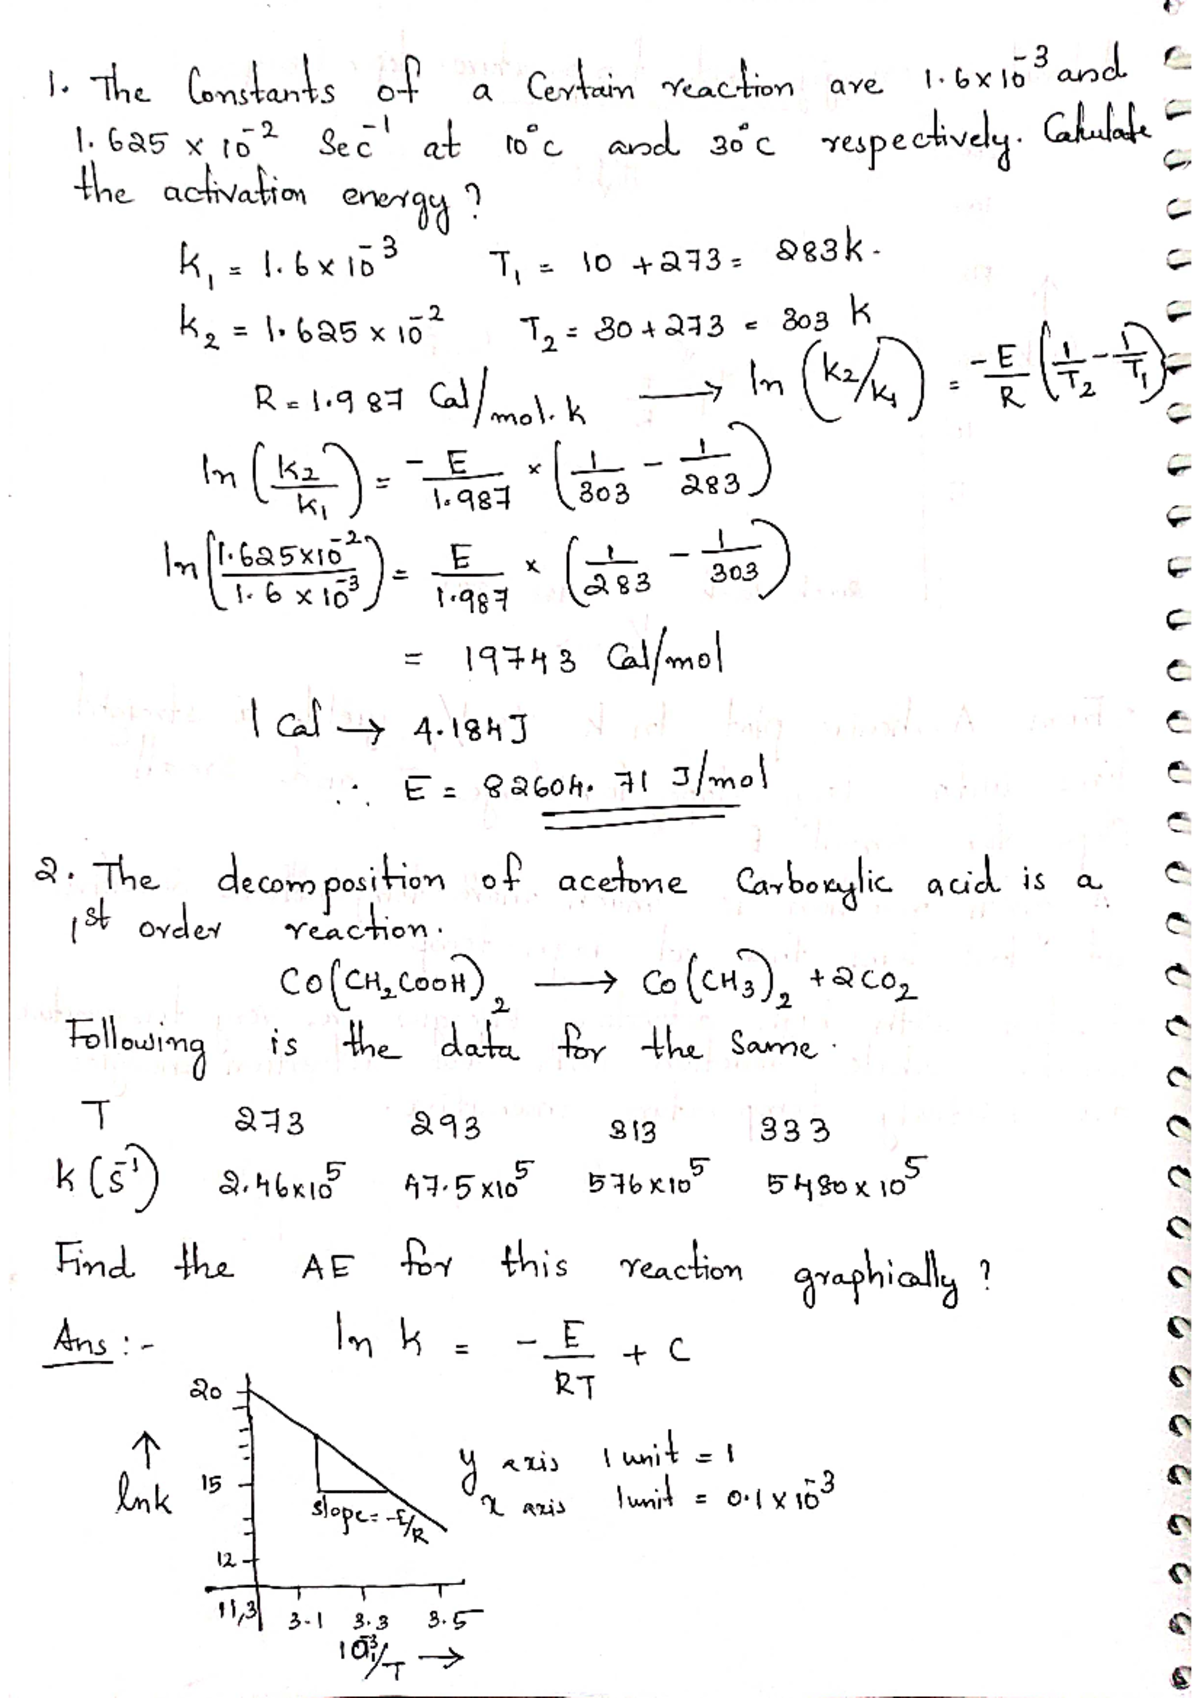 1. The Constants of a Certain reaction are 1.6 x 10⁻³ and
1.625 x 10⁻² Sec⁻¹ at 10°c and 30°c respectively. Calculate
the activation energy?
K₁ = 1.6 x 10⁻³ T₁ = 10 + 273 = 283k.
K₂ = 1.625 x 10⁻² T₂ = 30 + 273 = 303 K
R = 1.987 Cal/mol.k → ln (K₂/K₁) = -E/R (1/T₂ - 1/T₁)
ln (K₂/K₁) = -E/1.987 x (1/303 - 1/283)
ln (1.625x10⁻²/1.6 x 10⁻³) = E/1.987 x (1/283 - 1/303)
= 19743 Cal/mol
1 Cal → 4.184J
∴ E = 82604.71 J/mol
2. The decomposition of acetone Carboxylic acid is a
1st order reaction.
CO(CH₂COOH)₂ → CO(CH₃)₂ + 2CO₂
Following is the data for the Same.
T 273 293 313 333
K (S⁻¹) 2.46x10⁵ 47.5x10⁵ 576x10⁵ 5480x10⁵
Find the AE for this reaction graphically?
Ans :- ln k = -E/RT + C
20
↑
lnk
15
12
slope = -E/R
y axis 1 unit = 1
x axis 1unit = 0.1 x 10⁻³
11,3 3.1 3.3 3.5
10⁻³ 1/T →